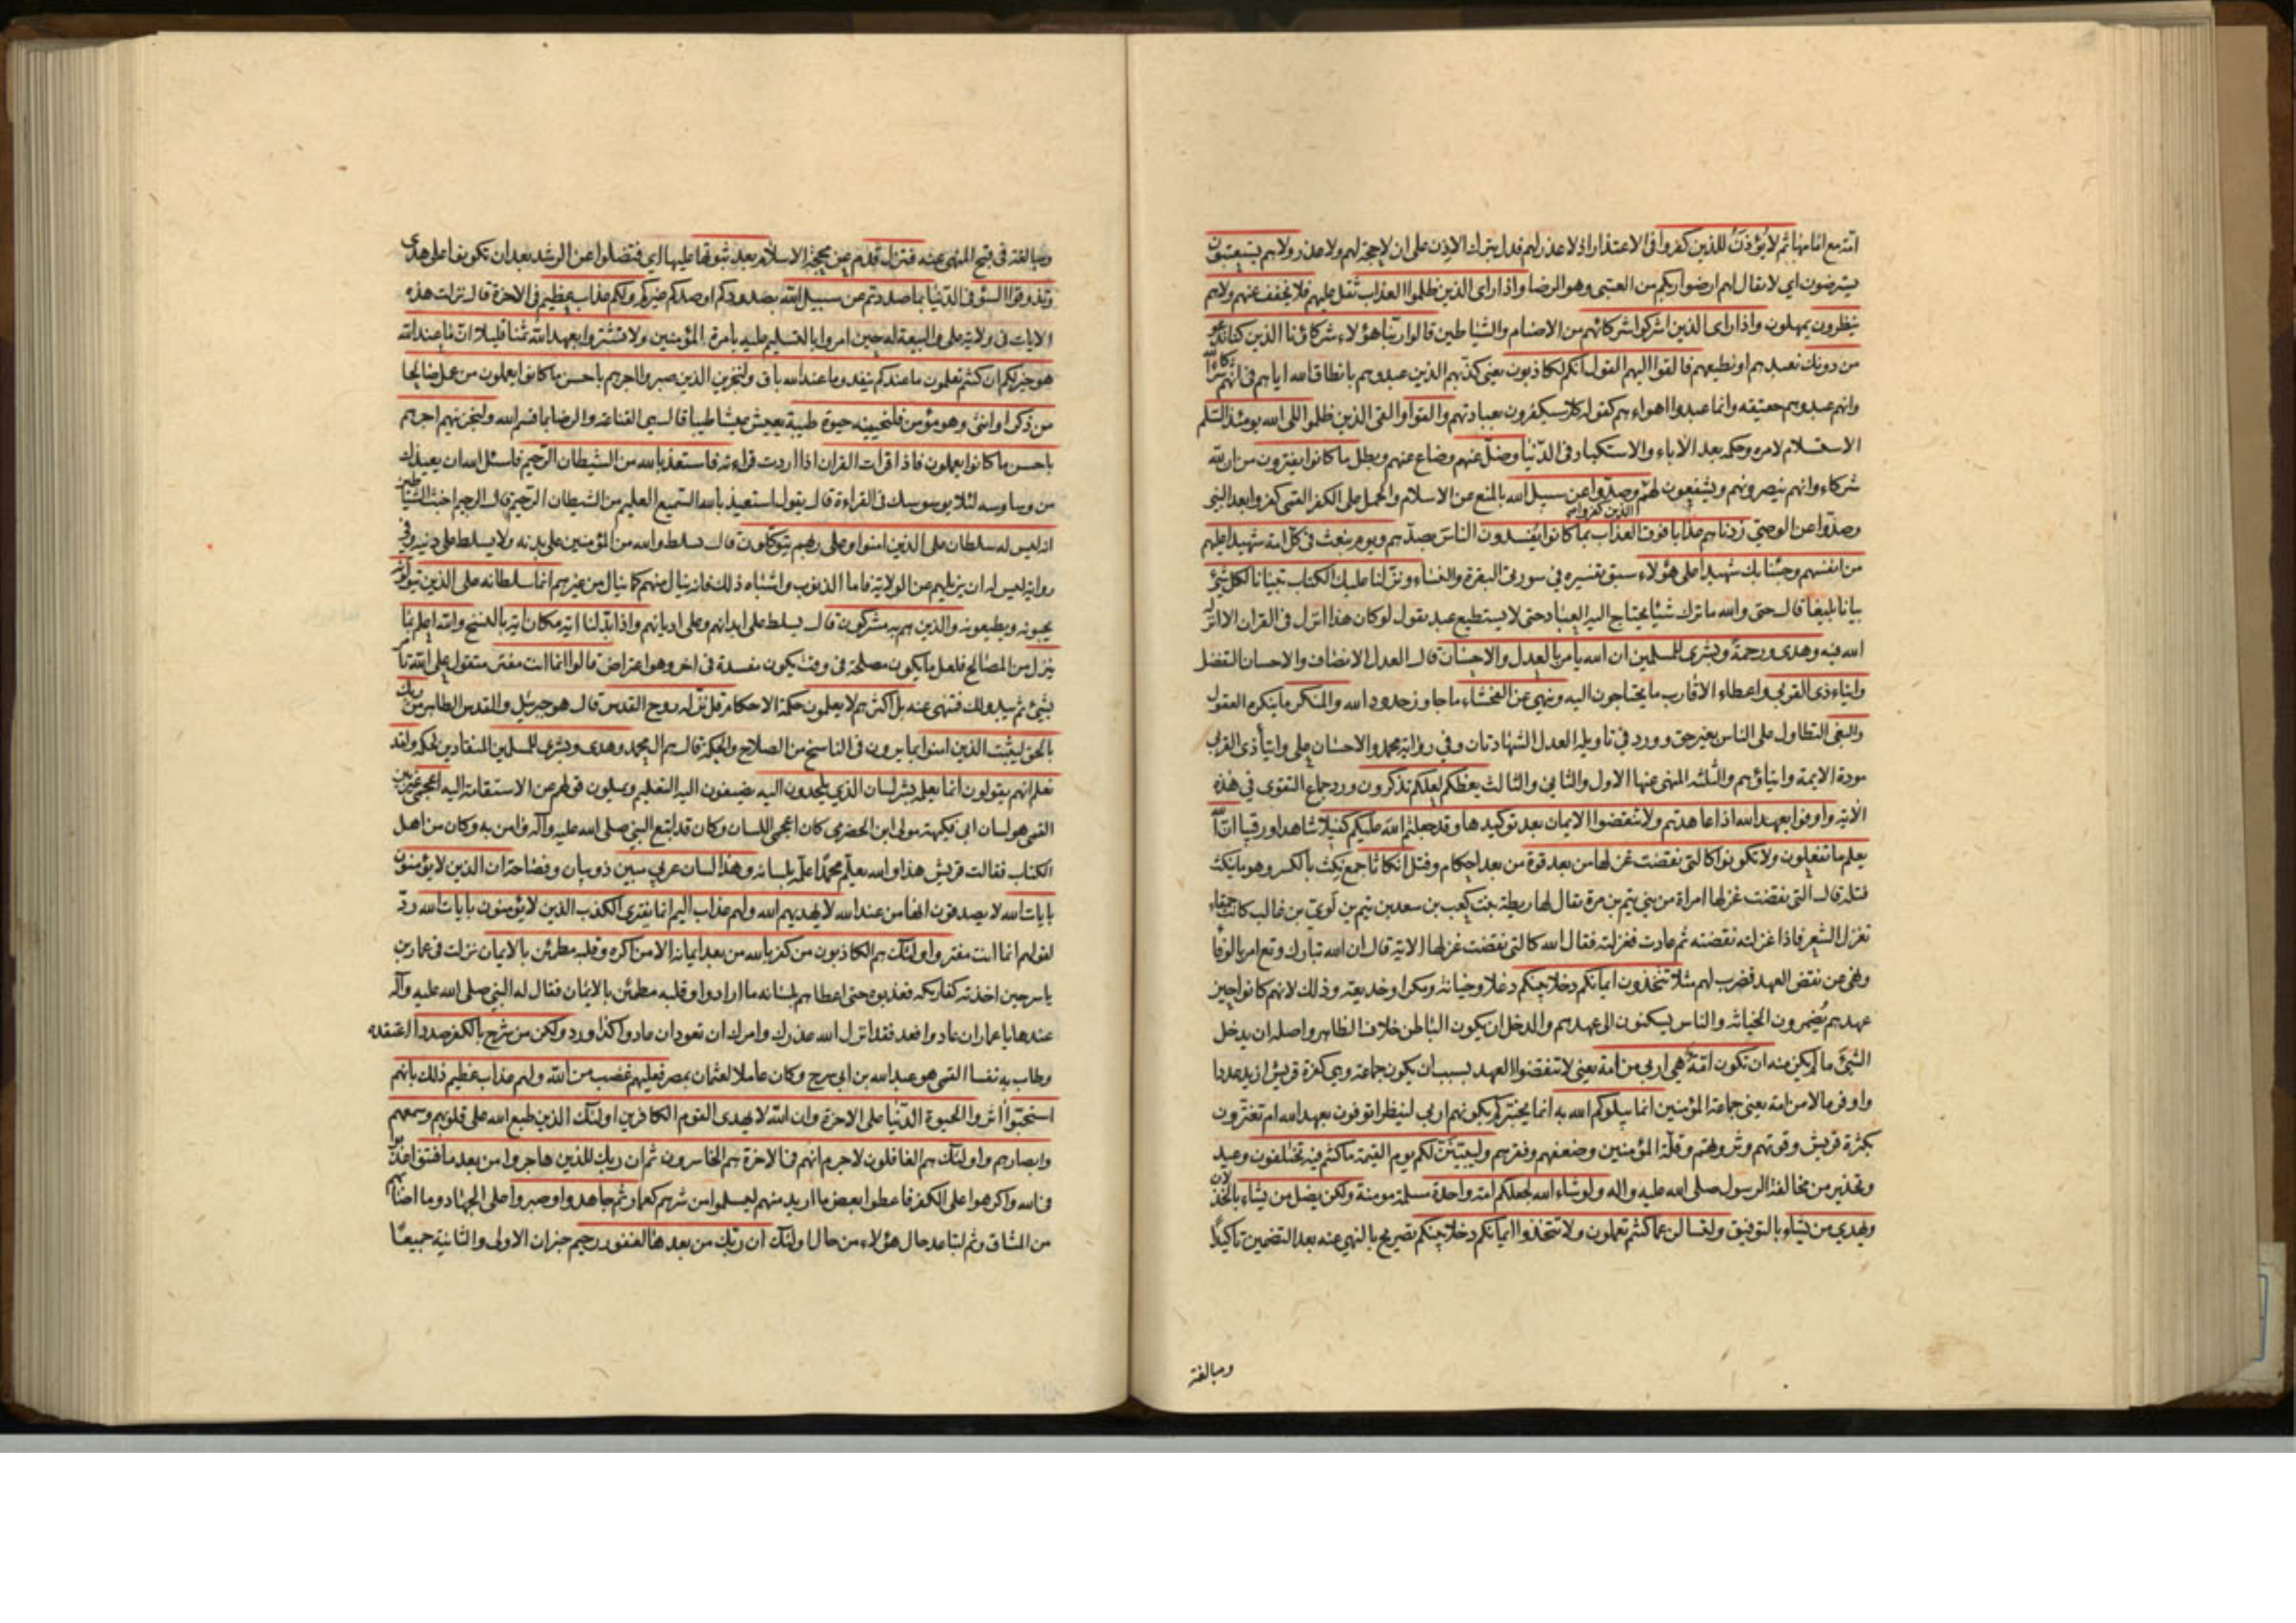 امّة مع امامها ثم لا يؤذن للذين كفروا فى الاعتذار اذ لا عذر لهم فدل بترك الاذن على ان لا حجة لهم ولا عذر ولا هم يستعتبون
يسترضون اى لا يقال لهم ارضوا ربكم من العتبى وهو الرضا واذا راى الذين ظلموا العذاب ثقل عليهم فلا يخفف عنهم ولا هم
ينظرون يمهلون واذا راى الذين اشركوا شركائهم من الاصنام والشياطين قالوا ربنا هؤلاء شركائنا الذين كنا ندعو
من دونك نعبدهم او نطيعهم فالقوا اليهم القول انكم لكاذبون يعنى كذبهم الذين عبدوهم بانطاق الله اياهم فى انهم شركاء الله
وانهم عبدوهم حقيقة وانما عبدوا اهواءهم كقوله كلا سيكفرون بعبادتهم والقوا والقى الذين ظلموا الى الله يومئذ السلم
الاستسلام لامره وحكمه بعد الاباء والاستكبار فى الدنيا وضل عنهم وضاع عنهم وبطل ما كانوا يفترون من ان لله
شركاء وانهم ينصرونهم ويشفعون لهم الذين كفروا وصدّوا عن سبيل الله بالمنع عن الاسلام والحمل على الكفر القمى كفروا بعد النبى
وصدّوا عن الوصى زدناهم عذابا فوق العذاب بما كانوا يفسدون الناس بصدّهم ويوم نبعث فى كل امة شهيدا عليهم
من انفسهم وجئنا بك شهيدا على هؤلاء سبق تفسيره فى سورتى البقرة والنساء ونزلنا عليك الكتاب تبيانا لكل شئ
بيانا بليغا قال حتى والله ما ترك شيئا يحتاج اليه العباد حتى لا يستطيع عبد يقول لو كان هذا انزل فى القران الا انزله
الله فيه وهدى ورحمة وبشرى للمسلمين ان الله يأمر بالعدل والاحسان قال العدل الانصاف والاحسان التفضل
وايتاء ذى القربى واعطاء الاقارب ما يحتاجون اليه وينهى عن الفحشاء ما جاوز حدود الله والمنكر ما ينكره العقول
والبغى التطاول على الناس بغير حق وورد فى تأويله العدل الشهادتان وفى رواية محمد والاحسان على وايتأ ذى القربى
مودة الايمة وايتاؤهم والثلثة المنهى عنها الاول والثانى والثالث يعظكم لعلكم تذكرون ورد جماع التقوى فى هذه
الاية واوفوا بعهد الله اذا عاهدتم ولا تنقضوا الايمان بعد توكيدها وقد جعلتم الله عليكم كفيلا شاهدا ورقيبا ان الله
يعلم ما تفعلون ولا تكونوا كالتى نقضت غزلها من بعد قوة من بعد احكام وفتل انكاثا جمع نكث بالكسر وهو ما ينكث
فتله قال التى نقضت غزلها امراة من بنى تيم بن مرة يقال لها ريطة بنت كعب بن سعد بن تيم بن لوى بن غالب كانت حمقاء
تغزل الشعر فاذا غزلته نقضته ثم عادت فغزلته فقال الله كالتى نقضت غزلها الاية قال ان الله تبارك وتع امر بالوفا
ونهى عن نقض العهد فضرب لهم مثلا تتخذون ايمانكم دخلا بينكم دغلا وخيانة ومكرا وخديعة وذلك لانهم كانوا حين
عهدهم يضمرون الخيانة والناس يسكنون الى عهدهم والدخل ان يكون الباطن خلاف الظاهر واصله ان يدخل
الشئ ما لم يكن منه ان تكون امة هى اربى من امة يعنى لا تنقضوا العهد بسبب ان يكون جماعة وهى كفرة قريش ازيد عددا
واوفر مالا من امة يعنى جماعة المؤمنين انما يبلوكم الله به انما يختبركم بكونهم اربى لينظر اتوفون بعهد الله ام تغترّون
بكثرة قريش وقوتهم وثروتهم وقلة المؤمنين وضعفهم وفقرهم وليبينن لكم يوم القيمة ما كنتم فيه تختلفون وعيد
وتحذير من مخالفة الرسول صلى الله عليه واله ولو شاء الله لجعلكم امة واحدة مسلمة مومنة ولكن يضل من يشاء بالخذلان
ويهدى من يشاء بالتوفيق ولتسالن عما كنتم تعملون ولا تتخذوا ايمانكم دخلا بينكم تصريح بالنهى عنه بعد التضمين تاكيدا
ومبالغة
ومبالغة فى قبح المنهى عنه فتزل قدم عن محجة الاسلام بعد ثبوتها عليها اى فتضلوا عن الرشد بعد ان تكونوا على هدى
وتذوقوا السوء فى الدنيا بما صددتم عن سبيل الله بصدودكم او صدكم غيركم ولكم عذاب عظيم فى الاخرة قال نزلت هذه
الايات فى ولاية على والبيعة له حين امروا بالتسليم عليه بامرة المؤمنين ولا تشتروا بعهد الله ثمنا قليلا ان ما عند الله
هو خير لكم ان كنتم تعلمون ما عندكم ينفد وما عند الله باق ولنجزين الذين صبروا اجرهم باحسن ما كانوا يعملون من عمل صالحا
من ذكر او انثى وهو مؤمن فلنحيينه حيوة طيبة يعيش عيشا طيبا قال هى القناعة والرضا بما قسم الله ولنجزينهم اجرهم
باحسن ما كانوا يعملون فاذا قرات القران اذا اردت قراءته فاستعذ بالله من الشيطان الرجيم فاسئل الله ان يعيذك
من وساوسه لئلا يوسوسك فى القراءة قال يقول استعيذ بالله السميع العليم من الشيطان الرجيم قال الرجيم اخبث الشياطين
انه ليس له سلطان على الذين امنوا وعلى ربهم يتوكلون قال يسلط والله من المؤمنين على بدنه ولا يسلط على دينه وفى
رواية ليس له ان يزيلهم عن الولاية فاما الذنوب واشباه ذلك فانه ينال منهم كما ينال من غيرهم انما سلطانه على الذين يتولونه
يحبونه ويطيعونه والذين هم به مشركون قال يسلط على ابدانهم وعلى اديانهم واذا بدلنا اية مكان اية بالنسخ والله اعلم بما
ينزل من المصالح فلعل ما يكون مصلحة فى وقت يكون مفسدة فى اخر وهو اعتراض قالوا انما انت مفتر متقول على الله تأمر
بشئ ثم يبدو لك فتنهى عنه بل اكثرهم لا يعلمون حكمة الاحكام قل نزله روح القدس قال هو جبرئيل والقدس الطاهر من ربك
بالحق ليثبت الذين امنوا بما يرون فى الناسخ من الصلاح والحكمة قال هم ال محمد وهدى وبشرى للمسلمين المنقادين لحكمه ولقد
نعلم انهم يقولون انما يعلمه بشر لسان الذى يلحدون اليه يضيفون اليه التعليم ويميلون قولهم عن الاستقامة اليه اعجمى غير بيّن
القمى هو لسان ابى فكيهة مولى ابن الحضرمى كان اعجمى اللسان وكان قد اتبع النبى صلى الله عليه وآله وامن به وكان من اهل
الكتاب فقالت قريش هذا والله يعلم محمدا علّمه بلسانه وهذا لسان عربى مبين ذو بيان وفصاحة ان الذين لا يؤمنون
بايات الله لا يصدقون انها من عند الله لا يهديهم الله ولهم عذاب اليم انما يفترى الكذب الذين لا يؤمنون بايات الله ردّ
لقولهم انما انت مفتر واولئك هم الكاذبون من كفر بالله من بعد ايمانه الا من اكره وقلبه مطمئن بالايمان نزلت فى عمار بن
ياسر حين اخذته كفار مكة فعذبوه حتى اعطاهم بلسانه ما ارادوا وقلبه مطمئن بالايمان فقال له النبى صلى الله عليه وآله
عندها يا عمار ان عادوا فعد فقد انزل الله عذرك وامرك ان تعود ان عادوا كذا ورد ولكن من شرح بالكفر صدرا اعتقده
وطاب به نفسا القمى هو عبد الله بن ابى سرح وكان عاملا لعثمان بمصر فعليهم غضب من الله ولهم عذاب عظيم ذلك بانهم
استحبّوا اثروا الحيوة الدنيا على الاخرة وان الله لا يهدى القوم الكافرين اولئك الذين طبع الله على قلوبهم وسمعهم
وابصارهم واولئك هم الغافلون لا جرم انهم فى الاخرة هم الخاسرون ثم ان ربك للذين هاجروا من بعد ما فتنوا عذبوا
فى الله واكرهوا على الكفر فاعطوا بعض ما اريد منهم ليسلموا من شرهم كعمار ثم جاهدوا وصبروا على الجهاد وما اصابهم
من المشاق وثم لتباعد حال هؤلاء من حال اولئك ان ربك من بعدها لغفور رحيم خبر ان الاولى والثانية جميعا